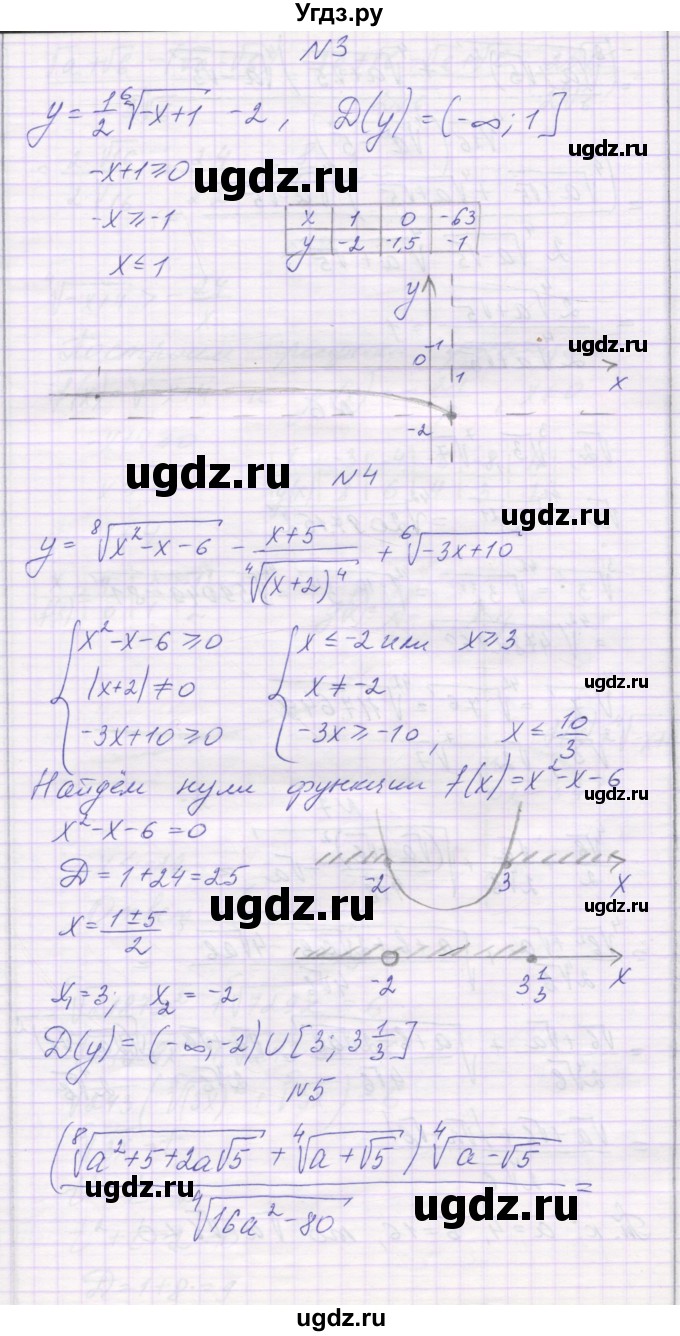 Угдз.ру
N3
y = 1/2 ⁶√(-x+1) - 2, D(y) = (-∞; 1]
-x+1 ≥ 0
ugdz.ru
ugdz.ru
-x ≥ -1
x 1 0 -63
y -2 -1,5 -1
x ≤ 1
y
ugdz.ru
1
0
1
x
-2
ugdz.ru
N4
ugdz.ru
y = ⁸√(x²-x-6) - (x+5)/⁴√((x+2)⁴) + ⁶√(-3x+10)
{ x²-x-6 ≥ 0 { x ≤ -2 или x ≥ 3
|x+2| ≠ 0 x ≠ -2
ugdz.ru
-3x+10 ≥ 0 -3x ≥ -10, x ≤ 10/3
Найдём нули функции f(x) = x²-x-6
ugdz.ru
x²-x-6 = 0
D = 1+24 = 25
-2 3 x
ugdz.ru
ugdz.ru
x = (1±5)/2
-2 3 1/3 x
x₁ = 3; x₂ = -2
D(y) = (-∞; -2) ∪ [3; 3 1/3]
ugdz.ru
N5
(⁸√(a²+5+2a√5) + ⁴√(a+√5)) ⁴√(a-√5) / ⁴√(16a²-80) =
ugdz.ru
ugdz.ru
ugdz.ru